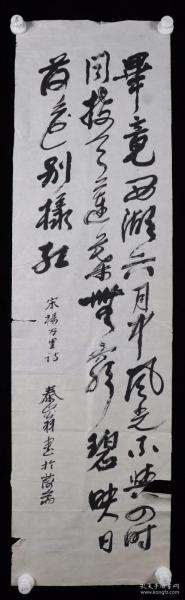 畢竟西湖六月中風光不與四时
同接天蓮葉無窮碧映日
荷花别樣红
宋楊万里詩
書於